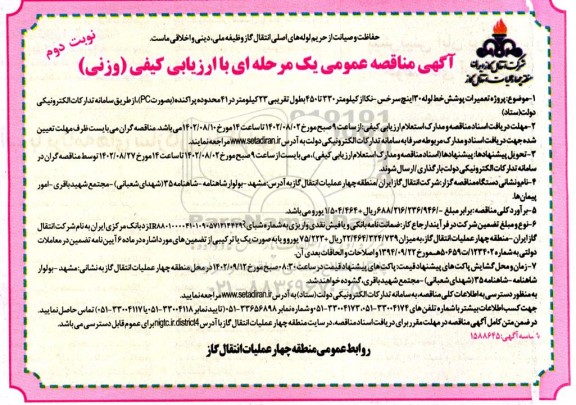 نوبت دوم
حفاظت و صیانت از حریم لوله‌های اصلی انتقال گاز وظیفه ملی، دینی و اخلاقی ماست.
آگهی مناقصه عمومی یک مرحله ای با ارزیابی کیفی (وزنی)
شرکت انتقال گاز ایران
منطقه چهار عملیات انتقال گاز
۱-موضوع: پروژه تعمیرات پوشش خط لوله ۳۰ اینچ سرخس -نکا از کیلومتر ۳۳۰ تا ۴۵۰ بطول تقریبی ۲۳ کیلومتر در ۴۱ محدوده پراکنده (بصورت PC)، از طریق سامانه تدارکات الکترونیکی
دولت (ستاد)
۲-مهلت دریافت اسناد مناقصه و مدارک استعلام ارزیابی کیفی: از ساعت ۹ صبح مورخ ۱۴۰۲/۰۸/۰۲ تا ساعت ۱۴ مورخ ۱۴۰۲/۰۸/۱۰ می‌باشد. مناقصه گران می بایست ظرف مهلت تعیین
شده جهت دریافت اسناد و مدارک مربوطه صرفا به سامانه تدارکات الکترونیکی دولت به آدرس www.setadiran.ir مراجعه نمایند.
۳-تحویل پیشنهادها: پیشنهادها (اسناد مناقصه و مدارک استعلام ارزیابی کیفی)، می بایست از ساعت ۹ صبح مورخ ۱۴۰۲/۰۸/۰۲ تا ساعت ۱۴ مورخ ۱۴۰۲/۰۸/۲۷ توسط مناقصه گران در
سامانه تدارکات الکترونیکی دولت بارگذاری/ارسال شوند.
۴-نام و نشانی دستگاه مناقصه گزار: شرکت انتقال گاز ایران/منطقه چهار عملیات انتقال گاز به آدرس: مشهد -بولوار شاهنامه -شاهنامه ۳۵ (شهدای شعبانی) -مجتمع شهید باقری -امور
پیمان‌ها.
۵-برآورد کلی مناقصه: برابر مبلغ -/۶۸۸/۲۱۶/۲۳۶/۹۴۶ ریال +۱/۵۰۴/۴۶۴ یورو می باشد.
۶-نوع و مبلغ تضمین شرکت در فرآیند ارجاع کار: ضمانت نامه بانکی و یا فیش نقدی واریزی به شماره شبای نزد بانک مرکزی ایران به نام شرکت انتقال
گاز ایران -منطقه چهار عملیات انتقال گاز، به میزان ۲۲/۴۶۴/۳۲۴/۷۳۹ ریال +۷۵/۲۲۳ یورو و یا به صورت یک یا ترکیبی از تضمین های مورد اشاره در ماده ۶ آیین نامه تضمین در معاملات
دولتی به شماره ۱۲۳۴۰۲/ت۵۰۶۵۹ه مورخ ۱۳۹۴/۰۹/۲۲ و اصلاحات و الحاقات بعدی آن.
۷- زمان و محل گشایش پاکت های پیشنهاد قیمت: پاکت‌های پیشنهاد قیمت در ساعت ۰۸:۳۰ صبح مورخ ۱۴۰۲/۰۹/۱۲ در محل منطقه چهار عملیات انتقال گاز به نشانی: مشهد - بولوار
شاهنامه -شاهنامه ۳۵ (شهدای شعبانی) - مجتمع شهید باقری، گشوده خواهند شد.
به منظور دسترسی به اطلاعات کلی مناقصه، به سامانه تدارکات الکترونیکی دولت (ستاد) به آدرس www.setadiran.ir مراجعه نمایید.
جهت کسب اطلاعات بیشتر با شماره تلفن های ۳۳۰۰۴۱۷۴-۰۵۱ و ۳۳۰۰۴۱۷۳-۰۵۱ و شماره نمابر ۳۳۶۵۶۸۹۸-۰۵۱ (تایید نمابر ۳۳۰۰۴۱۱۸-۰۵۱ یا ۳۳۰۰۴۱۱۷-۰۵۱) تماس حاصل نمایید.
در ضمن متن کامل آگهی مناقصه در مهلت مقرر برای دریافت اسناد مناقصه، در سایت منطقه چهار عملیات انتقال گاز با آدرس nigtc.ir.district4 برای عموم قابل دسترسی می باشد.
شناسه آگهی: ۱۵۸۸۶۴۵
روابط عمومی منطقه چهار عملیات انتقال گاز